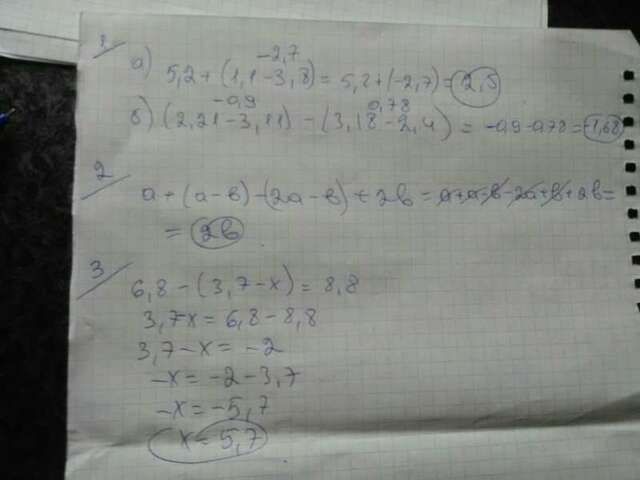 1
-2,7
а) 5,2 + (1,1 - 3,8) = 5,2 + (-2,7) = 2,5
-0,9 0,78
б) (2,21 - 3,11) - (3,18 - 2,4) = -0,9 - 0,78 = -1,68
2
а + (а - в) - (2а - в) + 2в = а + а - в - 2а + в + 2в =
= 2в
3
6,8 - (3,7 - х) = 8,8
3,7 - х = 6,8 - 8,8
3,7 - х = -2
-х = -2 - 3,7
-х = -5,7
х = 5,7